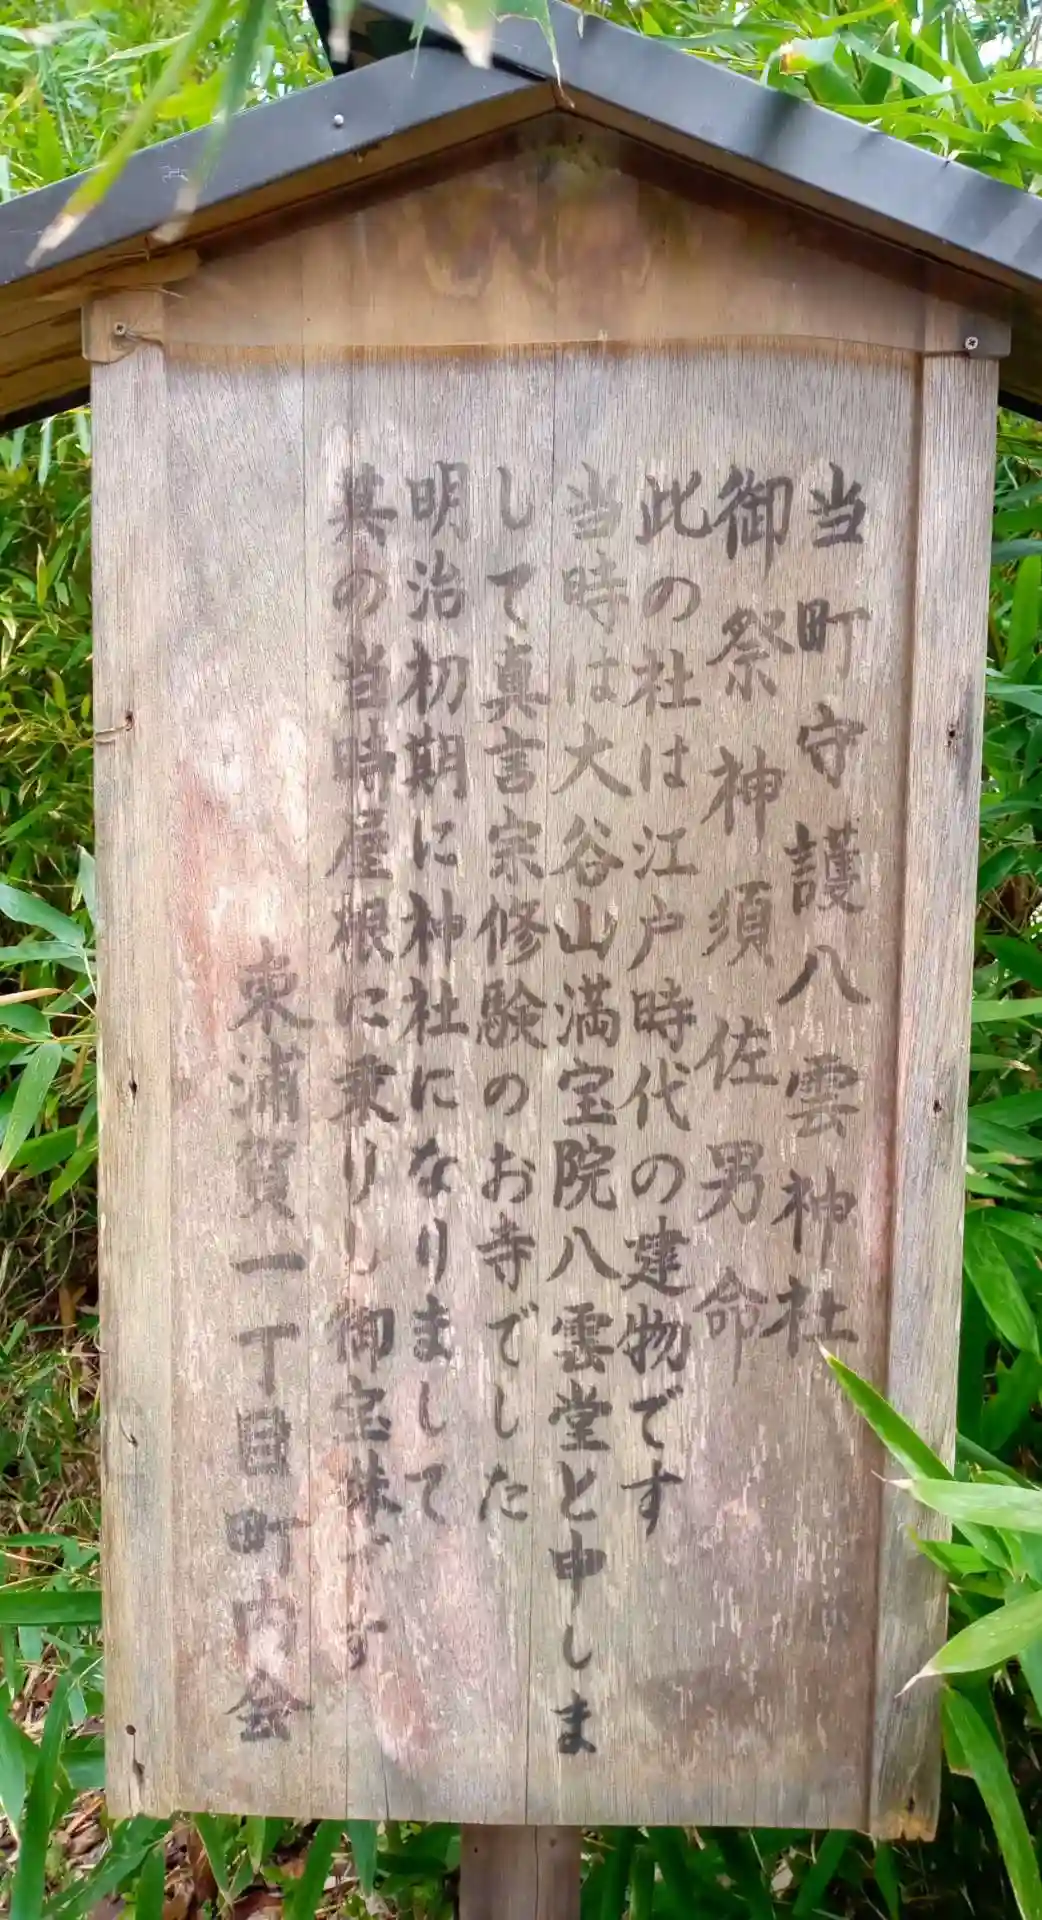 当町守護八雲神社
御祭神須佐男命
此の社は江戸時代の建物です
当時は大谷山満宝院八雲堂と申しま
して真言宗修験のお寺でした
明治初期に神社になりまして
其の当時屋根に乗りし御宝珠です
東浦賀一丁目町内会